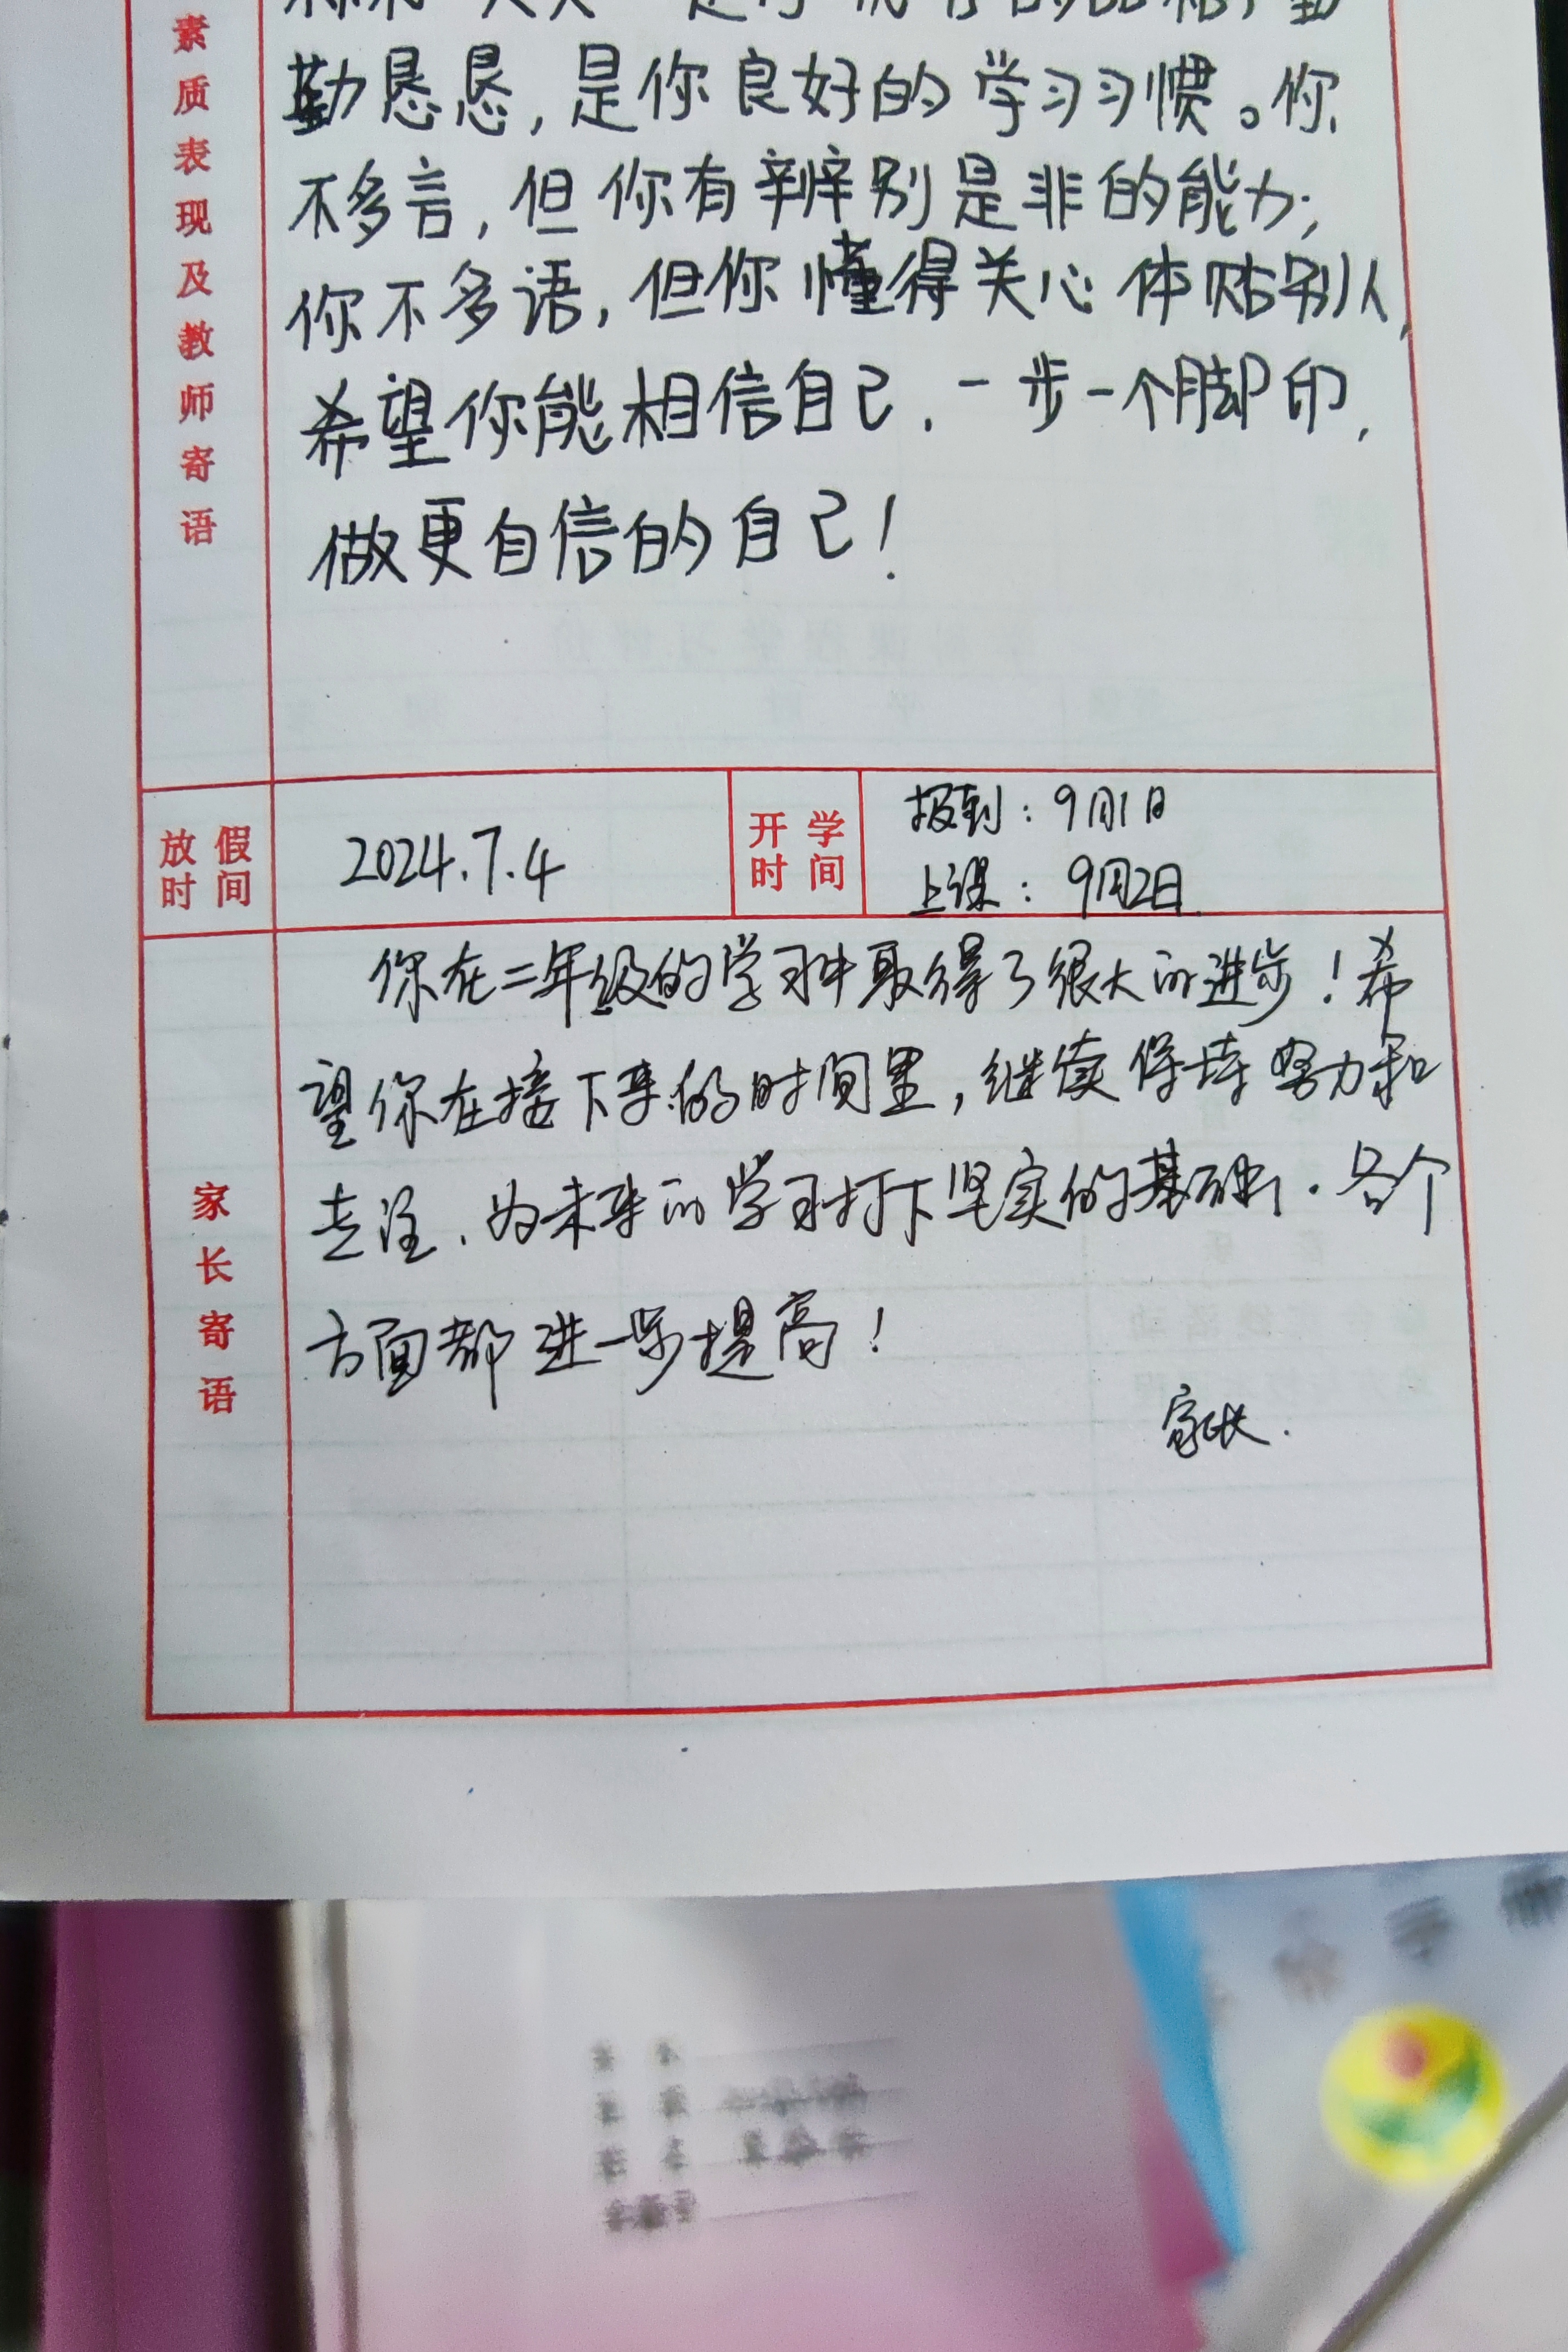 素质表现及教师寄语
勤恳恳，是你良好的学习习惯。你
不多言，但你有辨别是非的能力；
你不多语，但你懂得关心体贴别人，
希望你能相信自己，一步一个脚印，
做更自信的自己！
放假时间
2024.7.4
开学时间
报到：9月1日
上课：9月2日
家长寄语
你在二年级的学习中取得了很大的进步！希
望你在接下来的时间里，继续保持努力和
专注、为未来的学习打下坚实的基础．各个
方面都进一步提高！
家长．